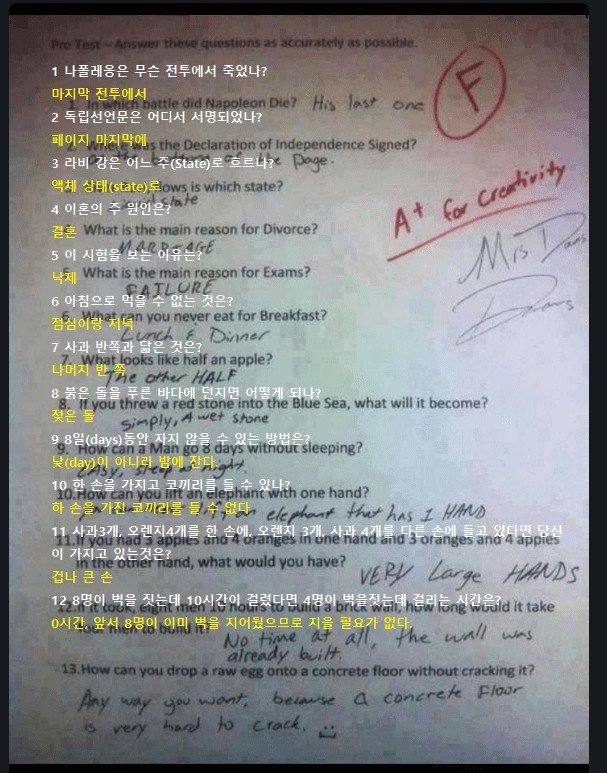 Pre Test – Answer these questions as accurately as possible.
F
1 나폴레옹은 무슨 전투에서 죽었나?
마지막 전투에서
In which battle did Napoleon Die? His last one
2 독립선언문은 어디서 서명되었나?
페이지 마지막에
was the Declaration of Independence Signed?
page.
3 라비 강은 어느 주(State)로 흐르나?
액체 상태(state)로
flows is which state?
state
A+ for Creativity
4 이혼의 주 원인은?
What is the main reason for Divorce?
결혼
MARRIAGE
Mrs
5 이 시험을 보는 이유는?
What is the main reason for Exams?
낙제
FAILURE
6 아침으로 먹을 수 없는 것은?
6. What can you never eat for Breakfast?
점심이랑 저녁
Lunch & Dinner
7 사과 반쪽과 닮은 것은?
7. What looks like half an apple?
나머지 반 쪽
The other HALF
8 붉은 돌을 푸른 바다에 던지면 어떻게 되나?
8. If you threw a red stone into the Blue Sea, what will it become?
젖은 돌
simply, A wet stone
9 8일(days)동안 자지 않을 수 있는 방법은?
9. How can a Man go 8 days without sleeping?
낮(day)이 아니라 밤에 잔다.
10 한 손을 가지고 코끼리를 들 수 있나?
10.How can you lift an elephant with one hand?
하 손을 가진 코끼리를 들 수 없다
an elephant that has 1 HAND
11 사과3개, 오렌지4개를 한 손에, 오렌지 3개, 사과 4개를 다른 손에 들고 있다면 당신
11.If you had 3 apples and 4 oranges in one hand and 3 oranges and 4 apples
이 가지고 있는것은?
in the other hand, what would you have?
겁나 큰 손
VERY Large HANDS
12 8명이 벽을 짓는데 10시간이 걸렸다면 4명이 벽을짓는데 걸리는 시간은?
12.If it took, eight men 10 hours to build a brick wall, how long would it take
0시간, 앞서 8명이 이미 벽을 지어뒀으므로 지을 필요가 없다.
four men to build it?
No time at all, the wall was
already built.
13.How can you drop a raw egg onto a concrete floor without cracking it?
Any way you want, because a concrete Floor
is very hard to crack.